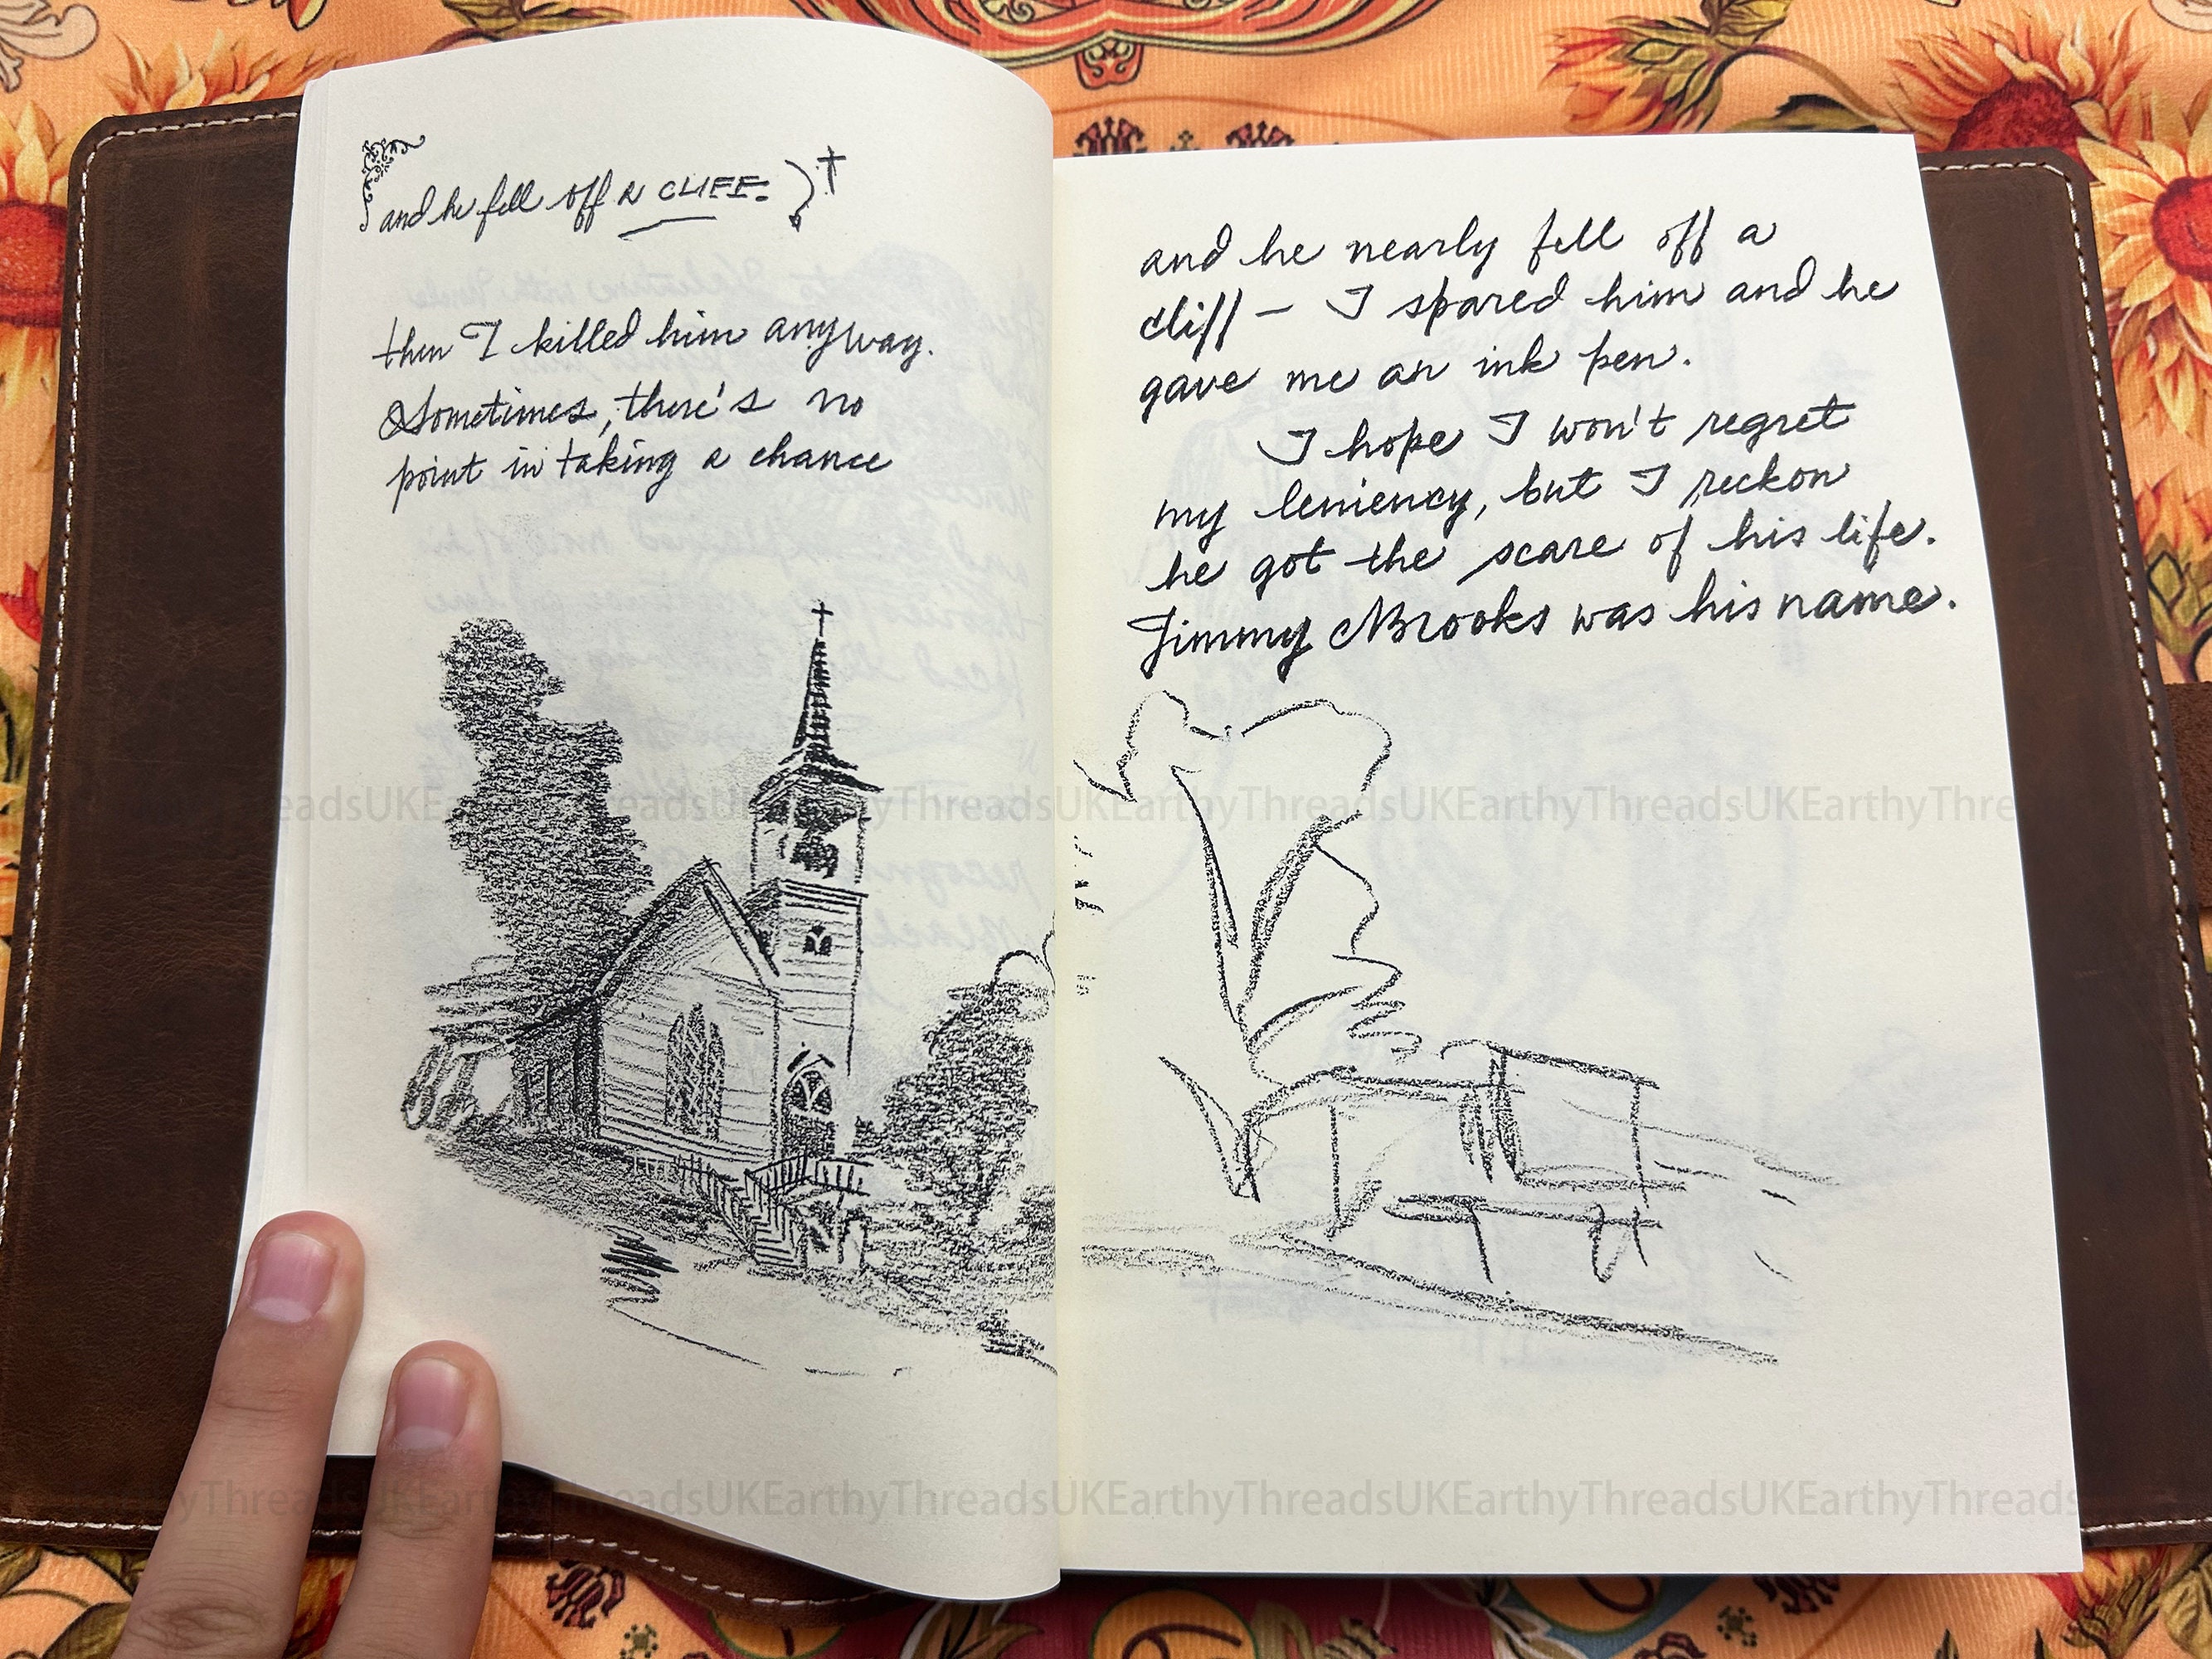 and he fell off a CLIFF.
then I killed him anyway.
Sometimes, there's no
point in taking a chance
and he nearly fell off a
cliff – I spared him and he
gave me an ink pen.
I hope I won't regret
my leniency, but I reckon
he got the scare of his life.
Jimmy Brooks was his name.
eadsUKEarthyThreadsUKEarthyThreadsUKEarthyThreadsUKEarthyThre
hyThreadsUKEarthyThreadsUKEarthyThreadsUKEarthyThreadsUKEarthyThreads